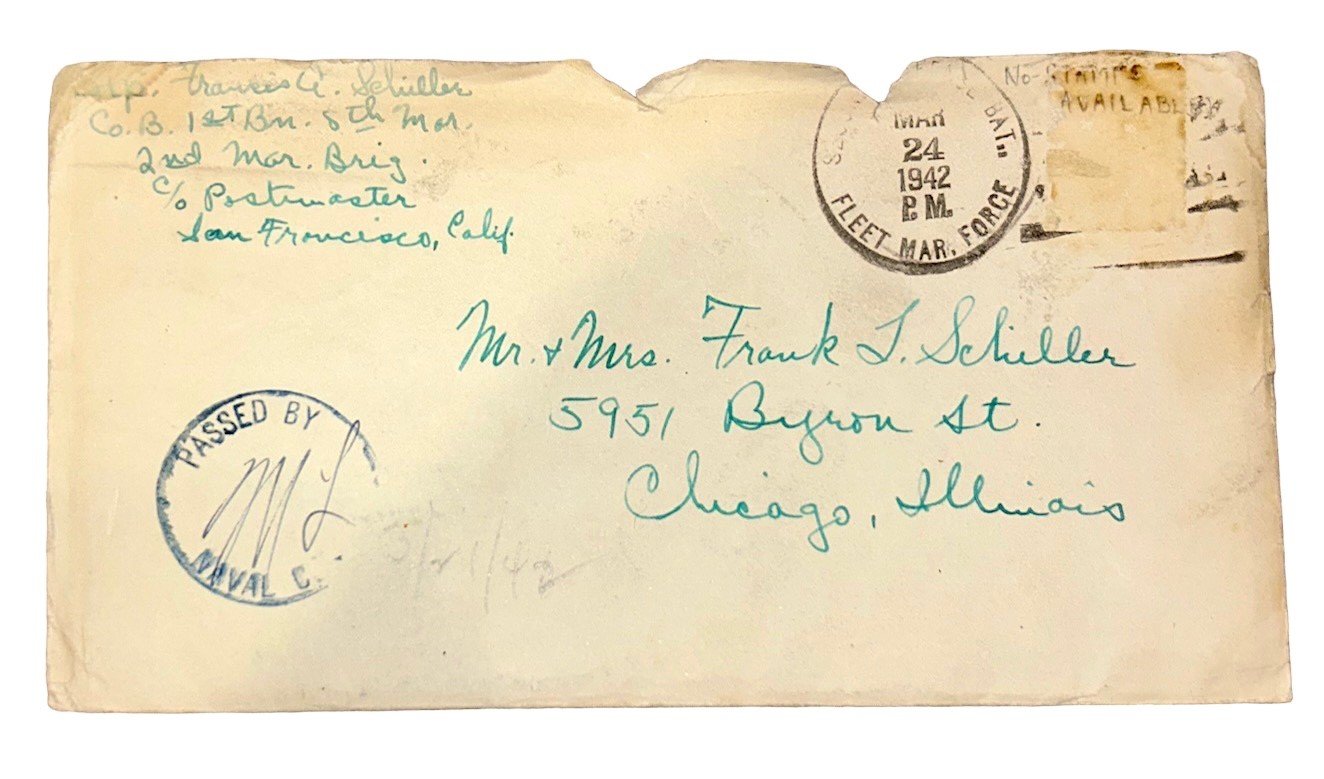 Corp. Francis A. Schiller
Co. B. 1st Bn. 8th Mar.
2nd Mar. Brig.
c/o Postmaster
San Francisco, Calif.
BAT"
MAR
24
1942
P.M.
FLEET MAR. FORCE
No STAMPS
AVAILABLE
Mr. & Mrs. Frank L. Schiller
5951 Byron St.
Chicago, Illinois
PASSED BY
NAVAL C
3/21/42